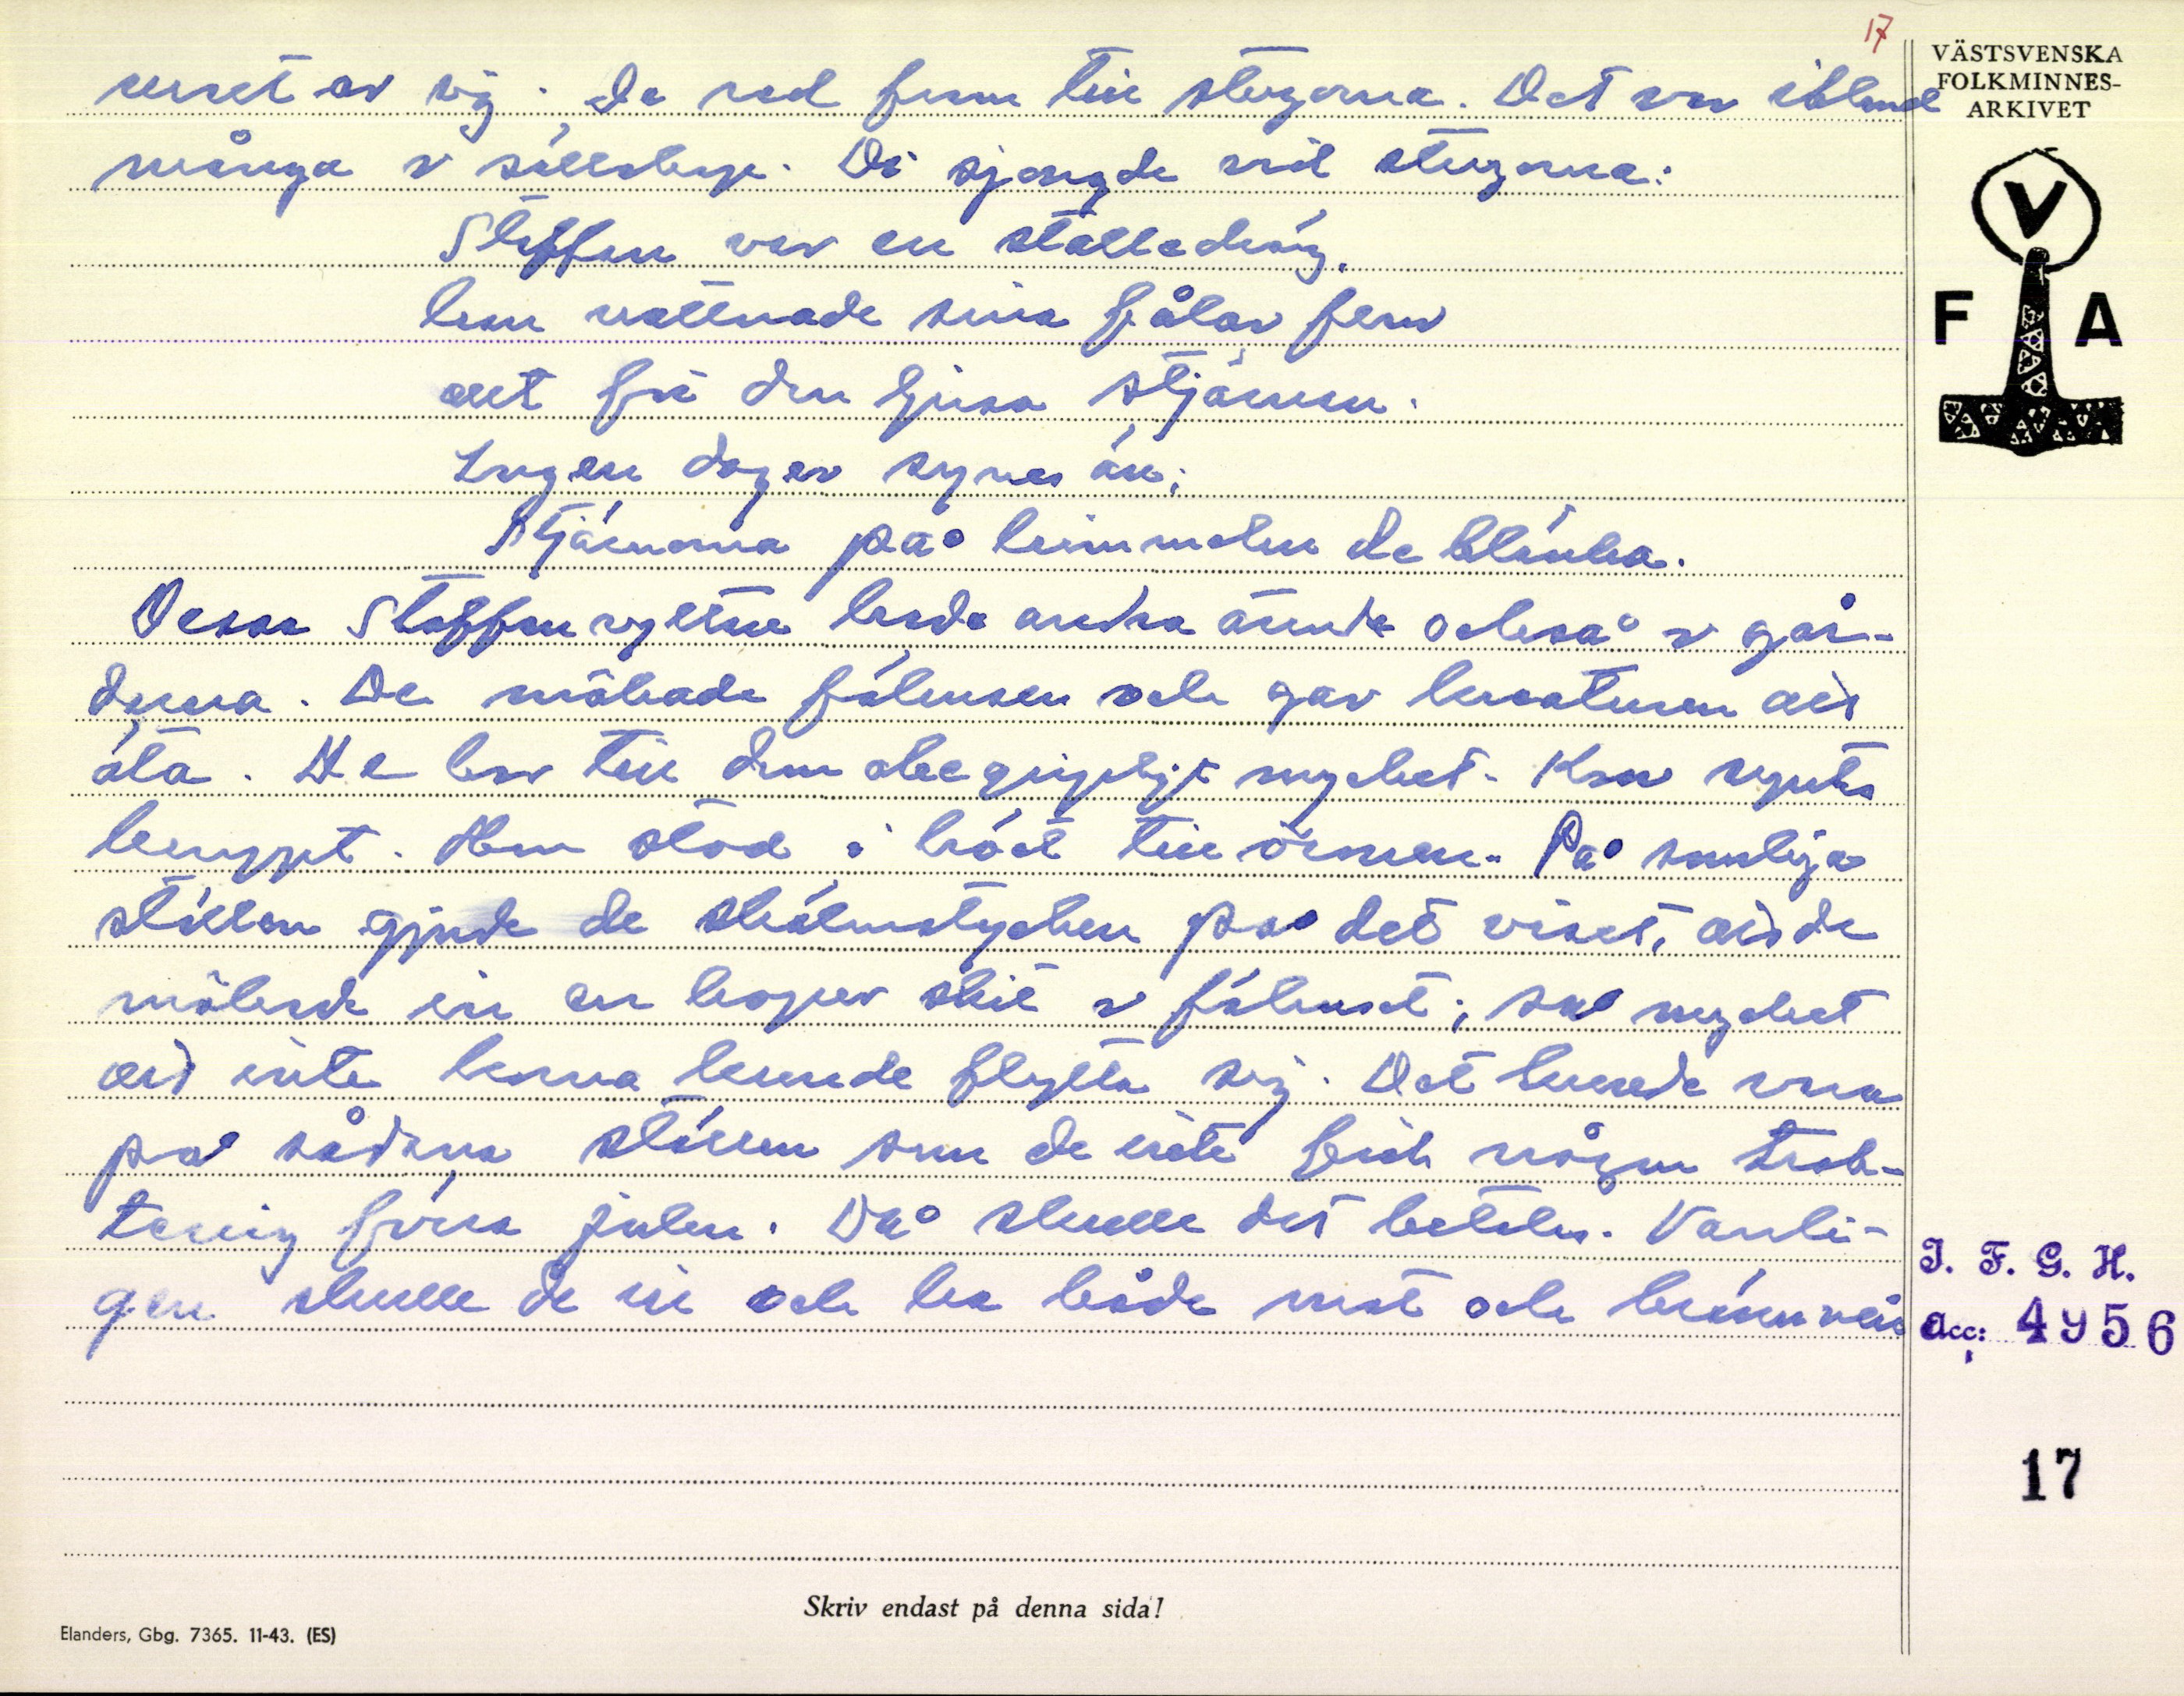 17
VÄSTSVENSKA
FOLKMINNES-
ARKIVET
V
F A
ruset av sig. De red fram till stugorna. Det var ibland
många i sällskap. De sjongde vid stugorna:
Staffan var en stalledräng.
han vattnade sina fålar fem
allt för den ljusa stjärnan.
Ingen dager synes än;
Stjärnorna på himmelen de blänka.
Dessa Staffansryttare hade andra ärende också i går-
darna. De mökade fähusen och gav kreaturen att
äta. De bar till dem obegripligt mycket. Kom
knappt. Hom stod i höet till öronen. På somliga
ställen gjorde de skälmstycken på det viset, att de
mökade in en hoper skit i fähuset; så mycket
att inte korna kunde flytta sig. Det kunde vara
på sådana ställen som de inte fick någon trak-
tering förra julen. Då skulle det betalas. Vanli-
gen skulle de in och ha både mat och brännvin
I. F. G. H.
Acc: 4956
17
Skriv endast på denna sida!
Elanders, Gbg. 7365. 11-43. (ES)